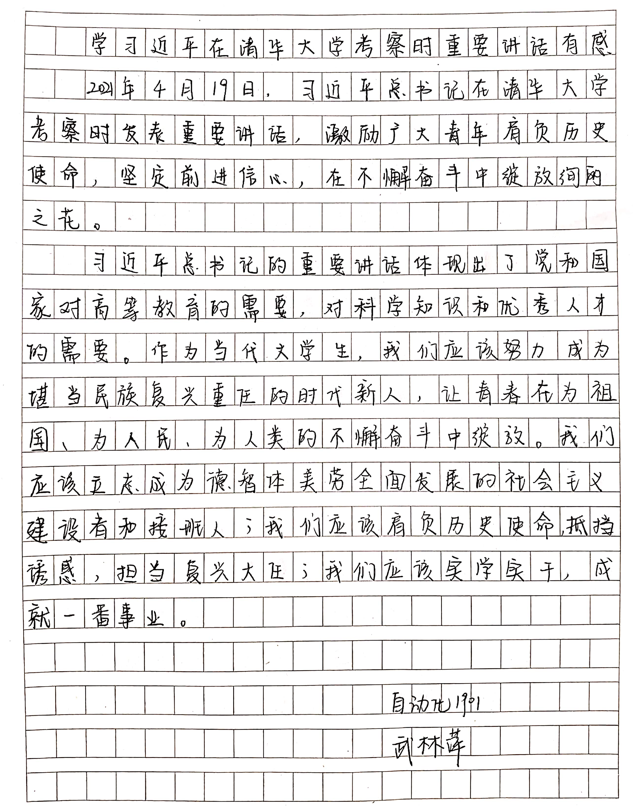 学习近平在清华大学考察时重要讲话有感
2021年4月19日，习近平总书记在清华大学
考察时发表重要讲话，激励了大青年肩负历史
使命，坚定前进信心，在不懈奋斗中绽放绚丽
之花。
习近平总书记的重要讲话体现出了党和国
家对高等教育的需要，对科学知识和优秀人才
的需要。作为当代大学生，我们应该努力成为
堪当民族复兴重任的时代新人，让青春在为祖
国、为人民、为人类的不懈奋斗中绽放。我们
应该立志成为德智体美劳全面发展的社会主义
建设者和接班人；我们应该肩负历史使命，抵挡
诱惑，担当复兴大任；我们应该实学实干，成
就一番事业。
自动化1901
武林萍